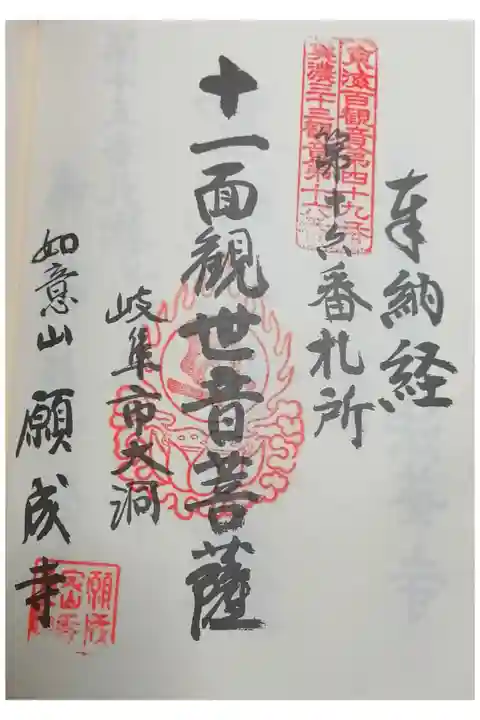 奉納経
東海百観音第四十九番
美濃三十三観音第十六番
第十六番札所
十一面観世音菩薩
岐阜市大洞
如意山 願成寺